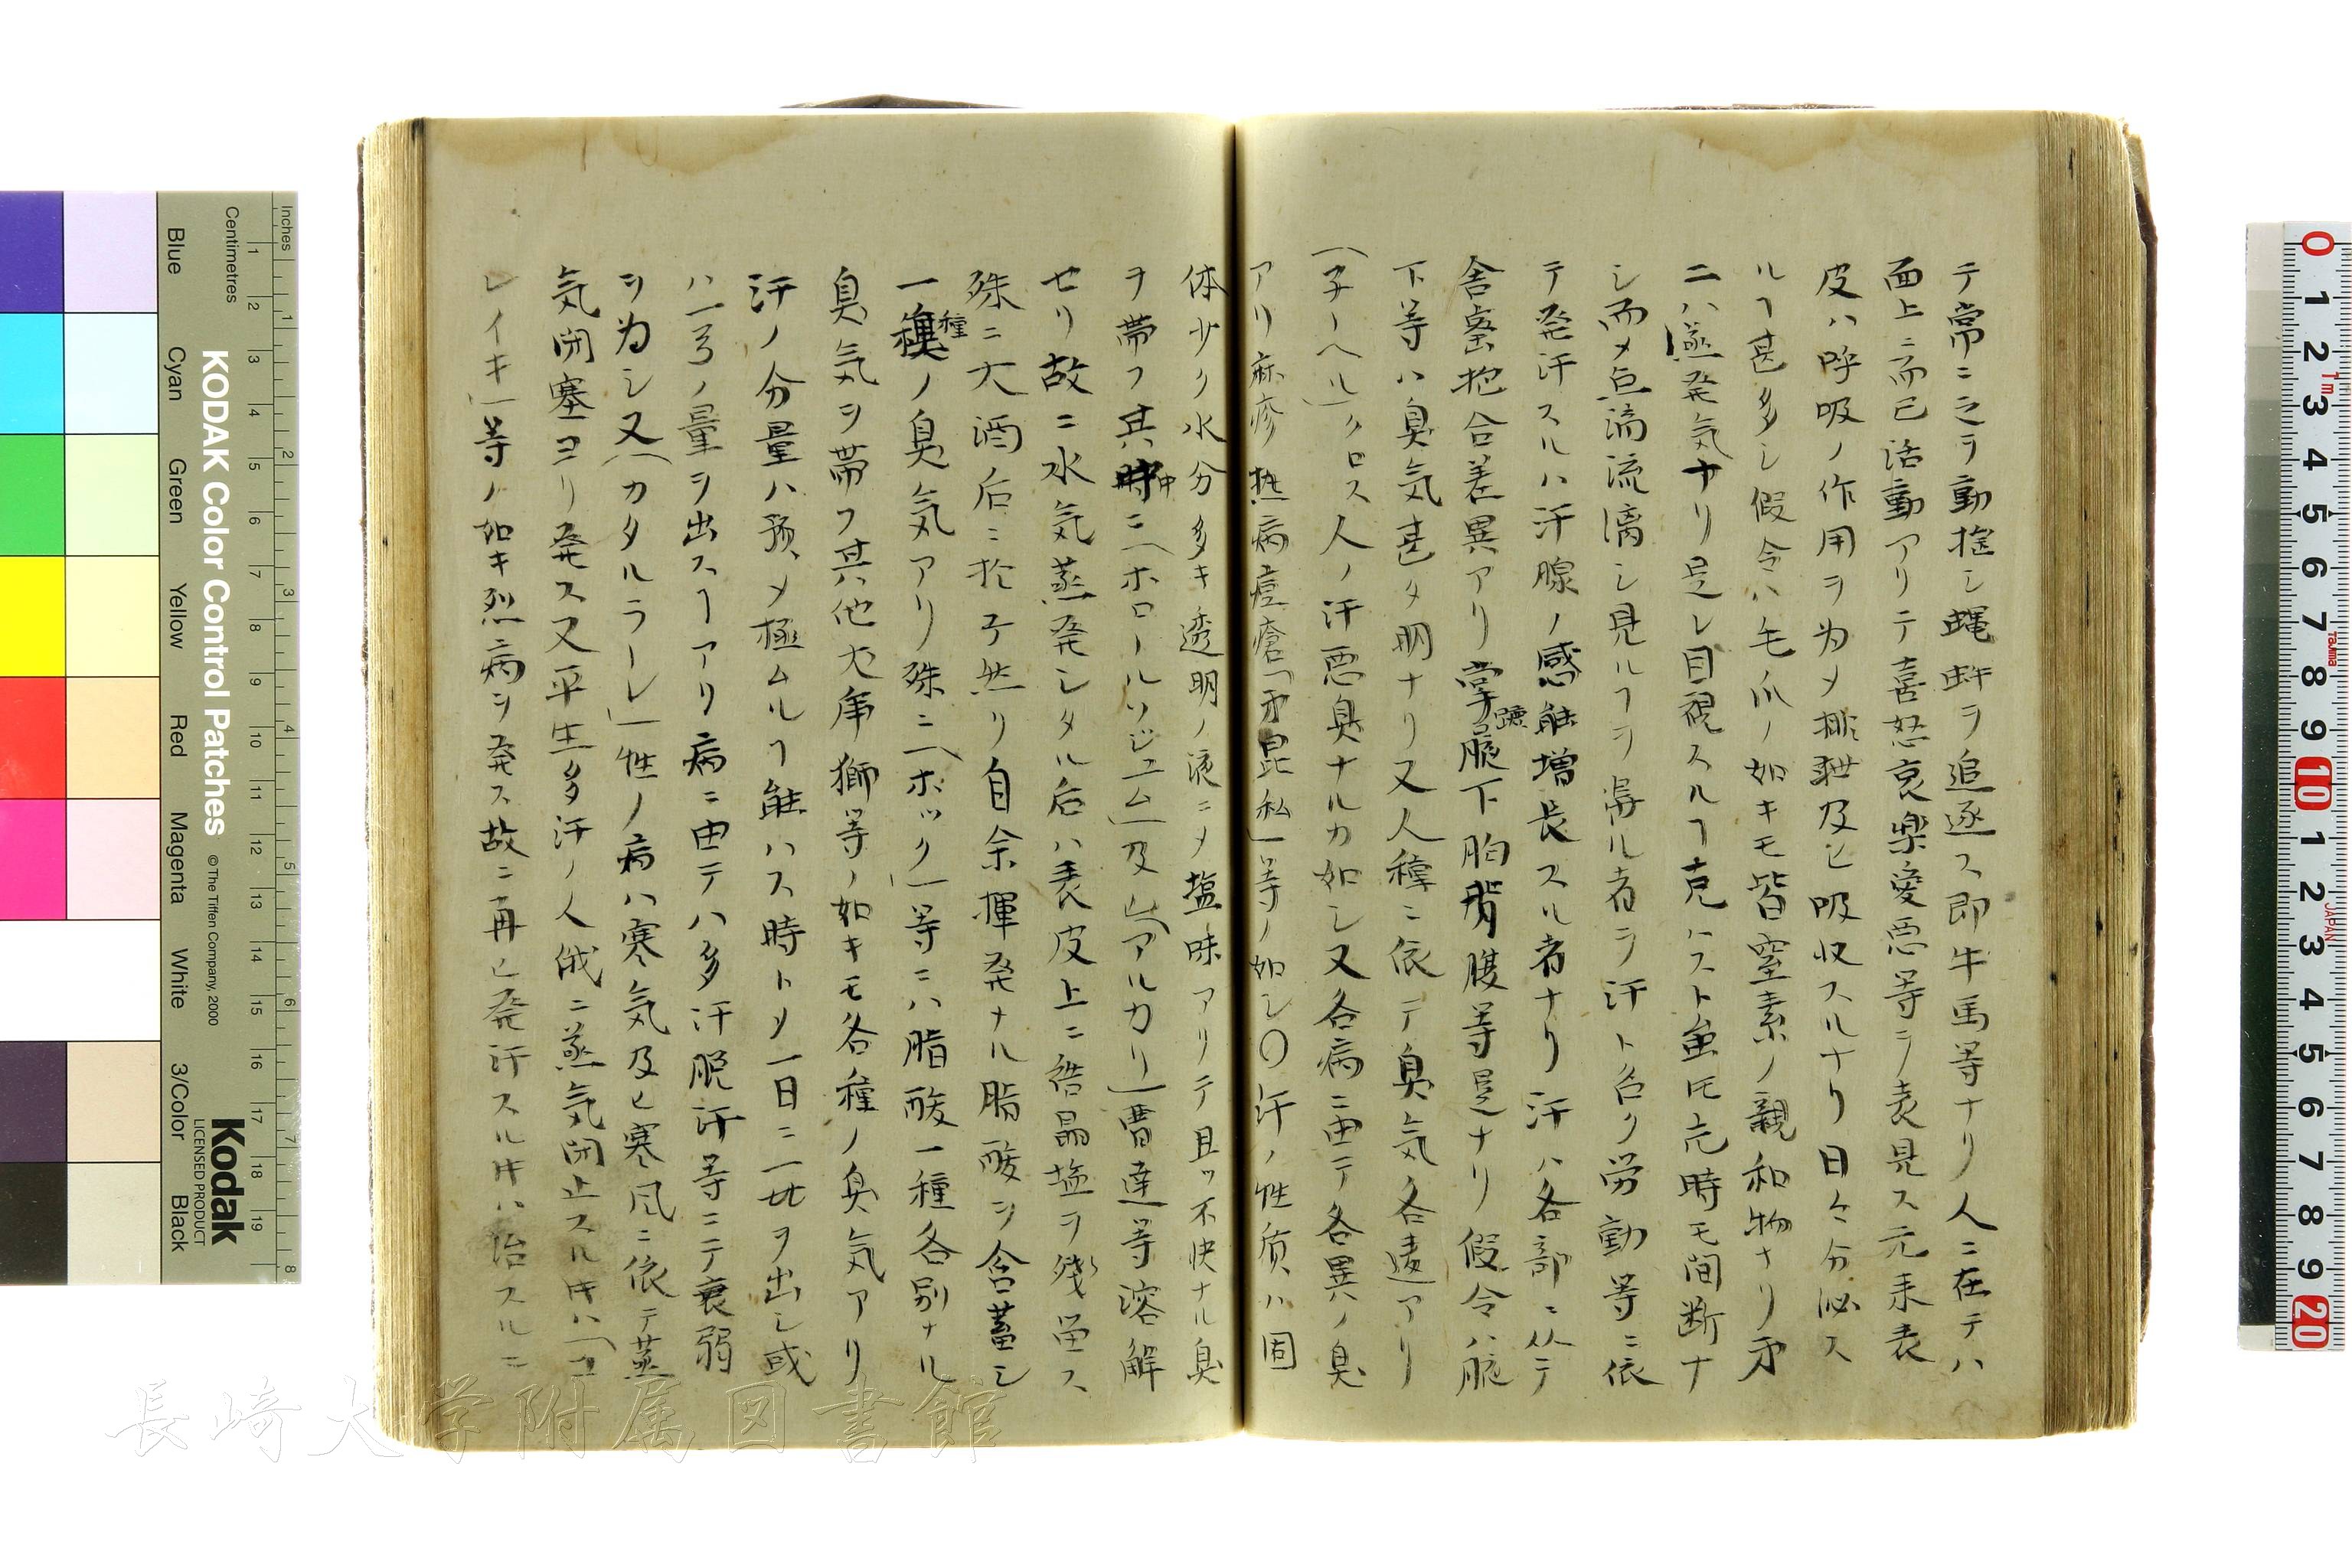 テ常ニ之ヲ動揺シ蠅蚌ヲ追逐ス即牛馬等ナリ人ニ在テハ
面上ニ而已活動アリテ喜怒哀楽愛悪等ヲ表見ス元来表
皮ハ呼吸ノ作用ヲ為メ排泄及ヒ吸収スルナリ日々分泌ス
ルヿ甚多シ假令ハ毛爪ノ如キモ皆窒素ノ親和物ナリ第
二ハ蒸発気ナリ是レ目視スルヿ克ハスト虽𪜈元時モ間断ナ
シ而メ点滴流漓シ見ルヿヲ得ル者ヲ汗ト名ク労動等ニ依
テ発汗スルハ汗腺ノ感能増長スル者ナリ汗ハ各部ニ従テ
含蓄抱合差異アリ掌蹠腋下胸背腹等是ナリ假令ハ腋
下等ハ臭気甚タ明ナリ又人種ニ依テ臭気各違アリ
(子ーヘル)クロス人ノ汗悪臭ナルカ如シ又各病ニ由テ各異ノ臭
アリ麻疹熱病痘瘡「第昆私」等ノ如シ〇汗ノ性質ハ固
体少ク水分多キ透明ノ液ニメ塩味アリテ且ツ不快ナル臭
ヲ帯フ其中ニ(ホロールソジユム)及ヒ(アルカリ)曹達等溶解
セリ故ニ水気蒸発シタル后ハ表皮上ニ結晶塩ヲ残留ス
殊ニ大酒后ニ於テ然リ自余揮発ナル脂酸ヲ含蓄シ
一種ノ臭気アリ殊ニ(ボック)等ニハ脂酸一種各別ナル
臭気ヲ帯フ其他犬虎獅等ノ如キモ各種ノ臭気アリ
汗ノ分量ハ預メ極ムルヿ能ハス時トメ一日ニ一廿ヲ出シ或
ハ一弓ノ量ヲ出スヿアリ病ニ由テハ多汗脱汗等ニテ衰弱
ヲ為シ又(カタルラーレ)性ノ病ハ寒気及ヒ寒風ニ依テ蒸
気閉塞ヨリ発ス又平生多汗ノ人俄ニ蒸気閉止スル𪜈ハ(コ
レイキ)等ノ如キ烈病ヲ発ス故ニ再ヒ発汗スル𪜈ハ治スルニ
KODAK Color Control Patches
© The Tiffen Company, 2000
Kodak
LICENSED PRODUCT
Inches
Centimetres
Blue
Cyan
Green
Yellow
Red
Magenta
White
3/Color
Black
長崎大学附属図書館